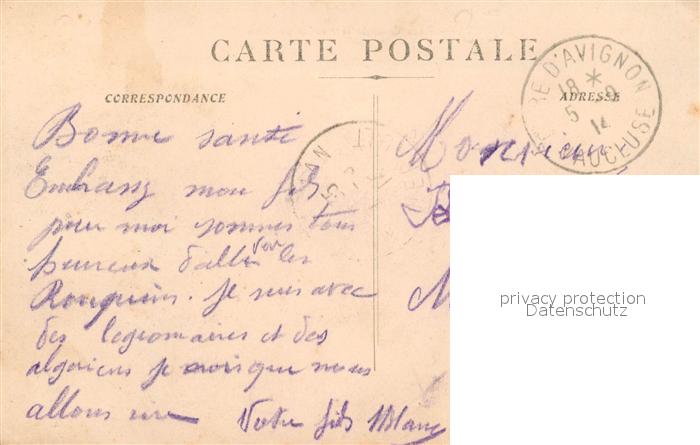 CARTE POSTALE
CORRESPONDANCE
ADRESSE
GARE D'AVIGNON
18 * 5 - 9
14
VAUCLUSE
Bonne santé
Embrass mon fils
pour moi sommes tous
heureux d'aller voir les
. Je suis avec
des legionnaires et des
algeriens je crois que nous
allons rire
Votre fils
Monsieur
privacy protection
Datenschutz